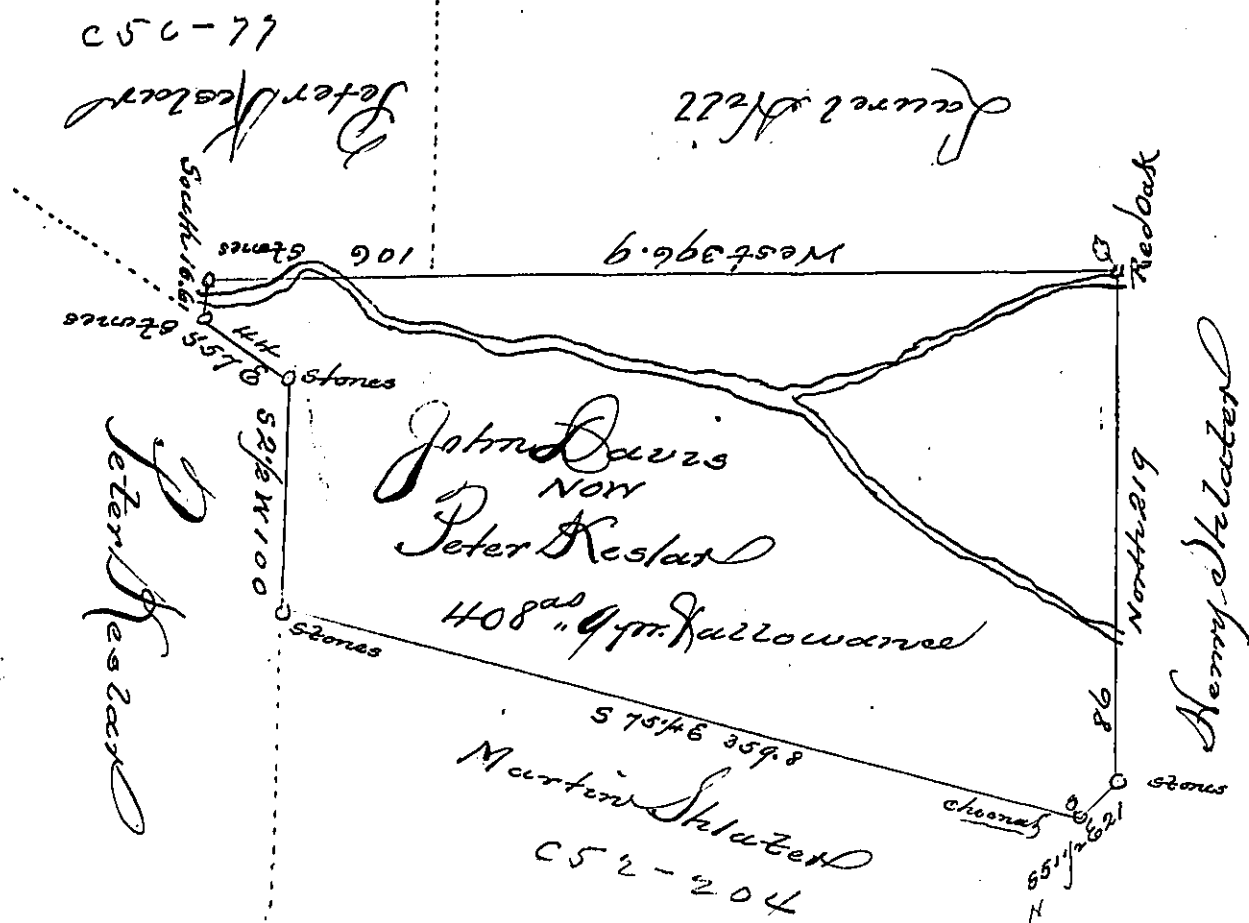 C50-77
Peter Keslar
Laurel Hill
South 16.6
Stones
106
West 396.9
Red Oak
Stones
S 55 E
44
Stones
S 2 1/2 W 100
Peter Keslar
John Davis
NOW
Peter Keslar
408 as " 9 pr. & allowance
Stones
North 219
86
Henry Shlater
S 75 1/4 E 359.8
Martin Shlater
C52-204
stones